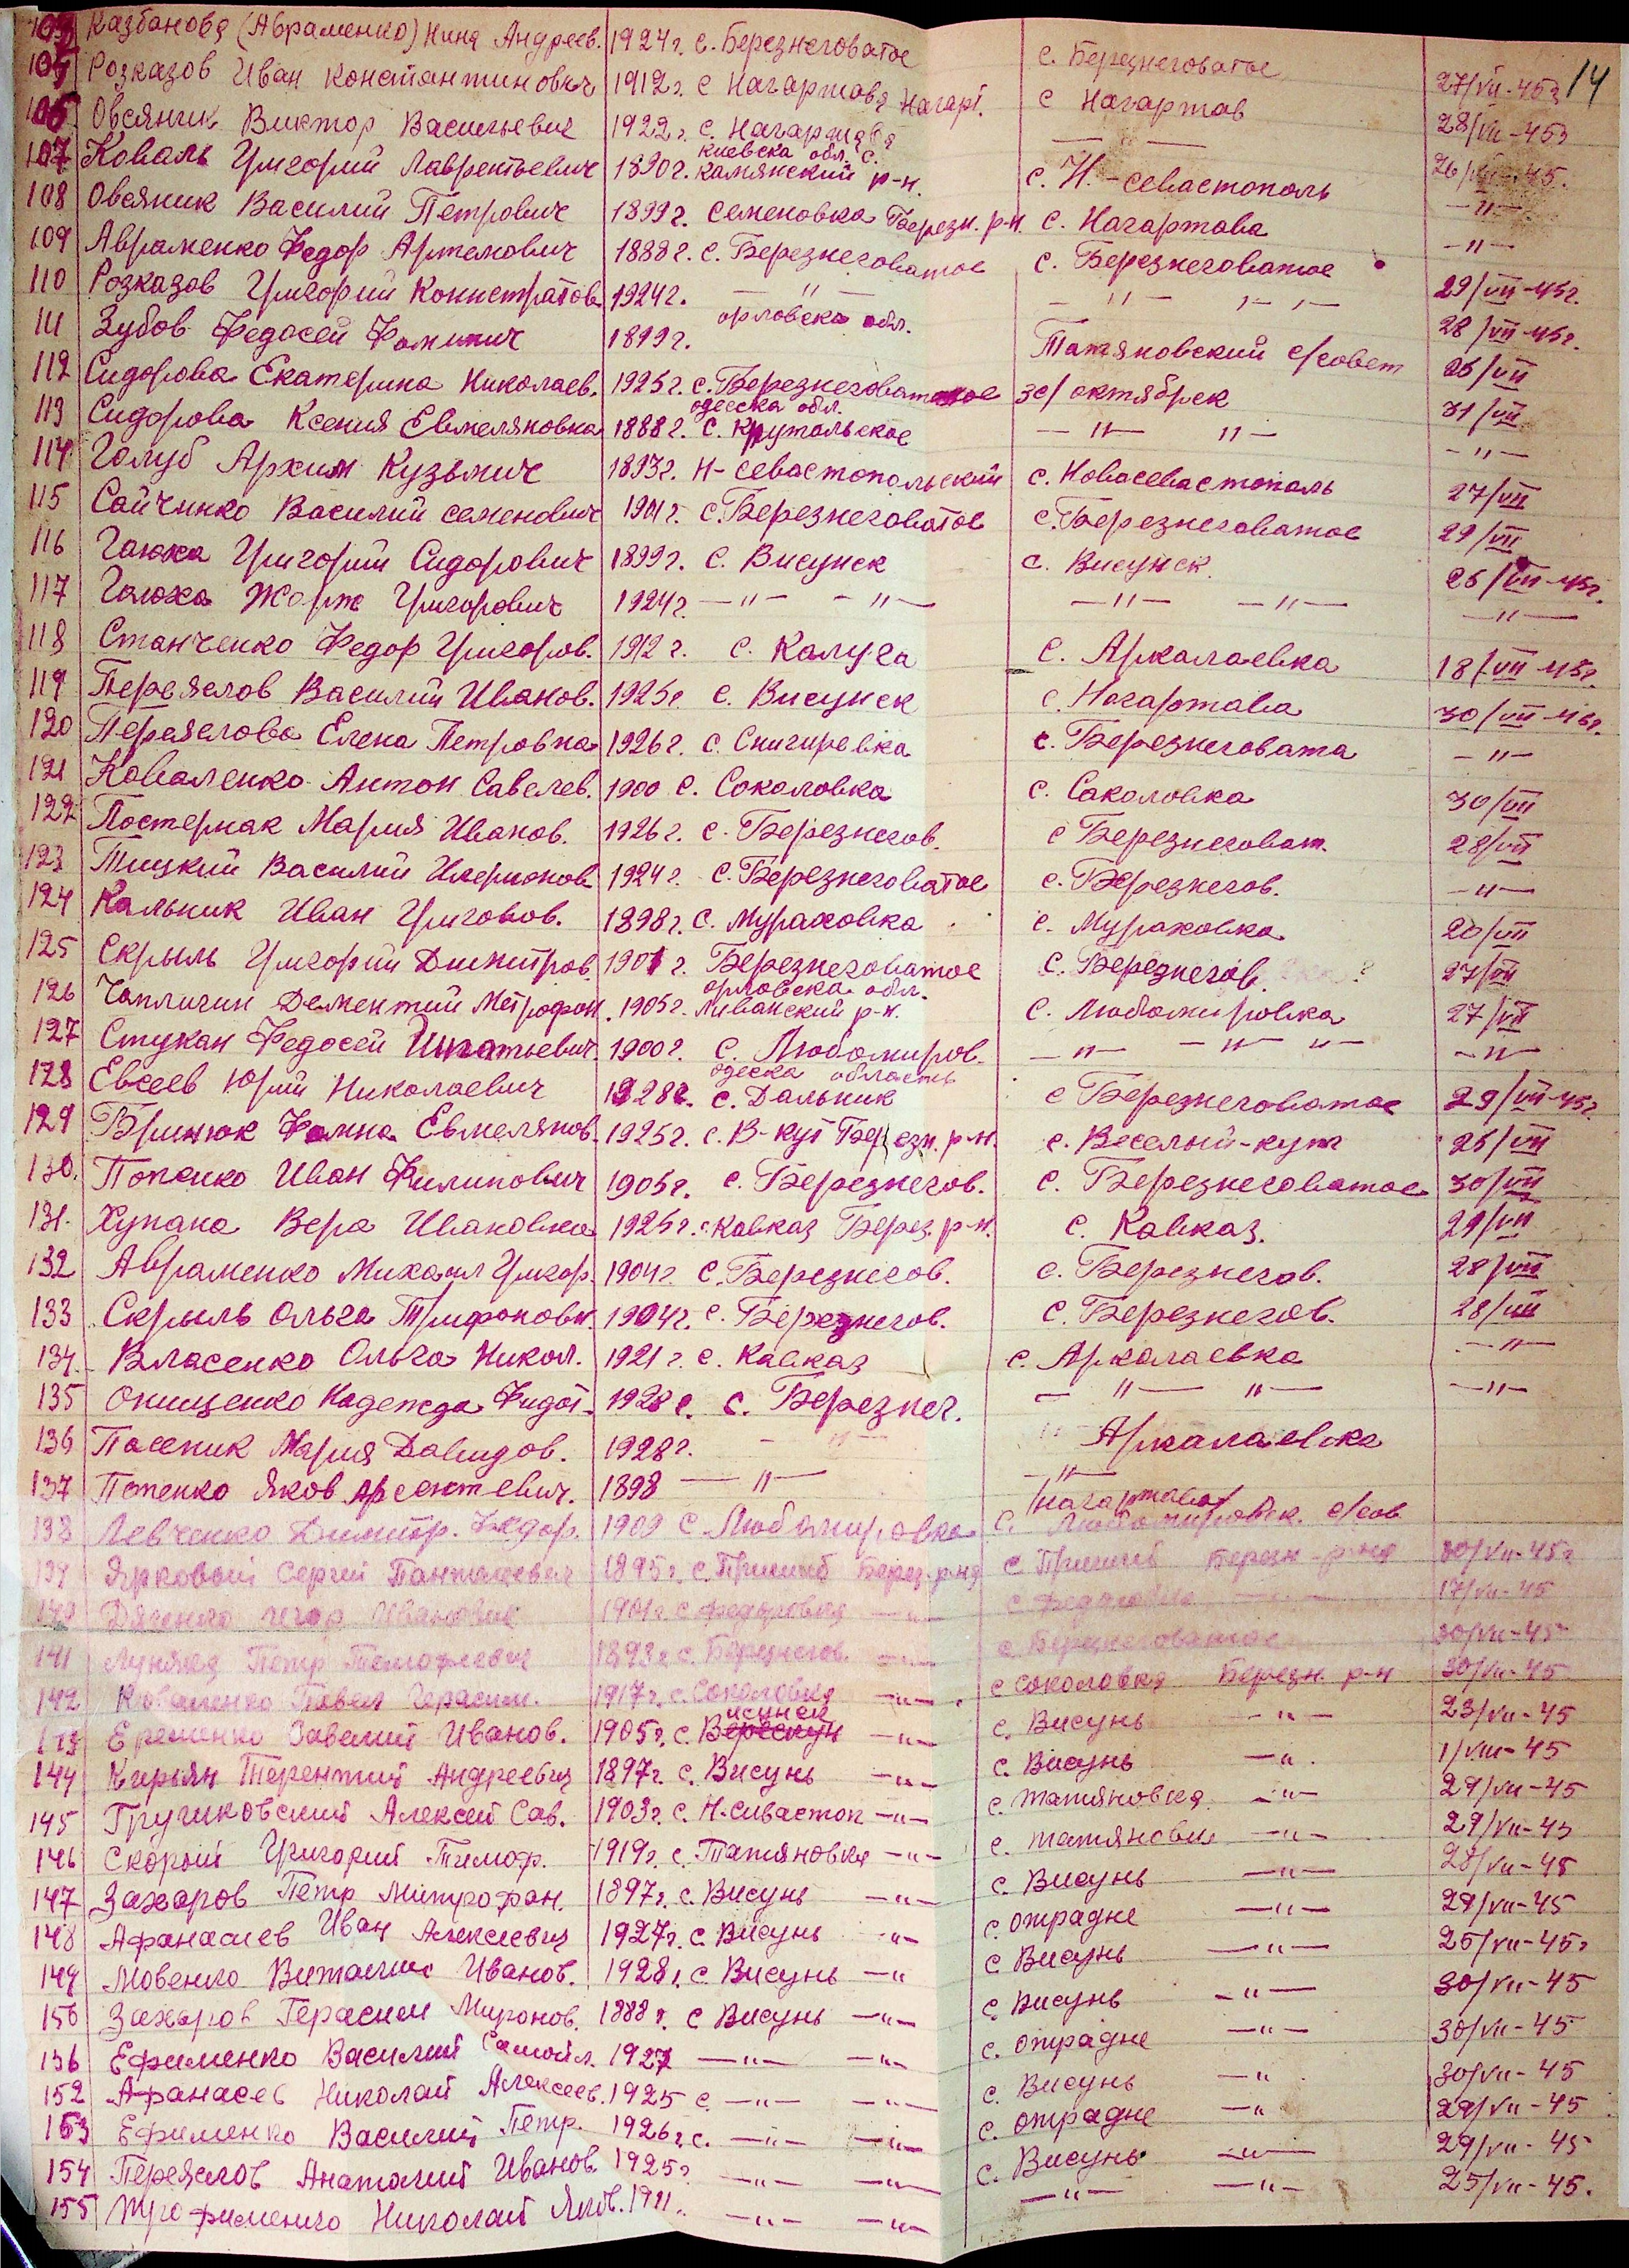 14
Казбанова (Авраменко) Нина Андреев. 1924 г. с. Березнеговатое с. Березнеговатое 27/VII-45г
Розказов Иван Константинович 1912 г. с Нагартова Нагарт. с Нагартов 28/VII-45г
106 Овсяник Виктор Васильевич 1922 г. с. Нагартова — — 26/VII-45.
107 Коваль Григорий Лаврентьевич 1890 г. киевска обл. с. камянский р-н. с. Н.-севастополь —"—
108 Овсяник Василий Петрович 1899 г. Семеновка Березн. р-н. с. Нагартава —"—
109 Авраменко Федор Артемович 1888 г. с. Березнеговатое с. Березнеговатое 29/VII-45г.
110 Розказов Григорий Конистратов. 1924 г. — " — — " — 28/VII-45г.
111 Зубов Федосей Фомич 1899 г. орловска обл. Татяновский с/совет 26/VII
112 Сидорова Екатерина Николаев. 1925 г. с. Березнеговатое зс/ октябрск 31/VII
113 Сидорова Ксения Евмеляновна 1888 г. одесска обл. с. — " — " — —"—
114 Голуб Архим Кузьмич 1893 г. Н-севастопольский с. Новосевастополь 27/VII
115 Сайченко Василий семенович 1901 г. с. Березнеговатое с. Березнеговатое 29/VII
116 Гаюха Григорий Сидорович 1899 г. с. Висунск с. Висунск 26/VII-45г.
117 Гаюха Жорж Григорович 1924 г. —"— —"— —"— —"— —"—
118 Станченко Федор Григоров. 1912 г. с. Калуга с. Аркалаевка 18/VII-45г.
119 Переяслов Василий Иванов. 1925 г с. Висунск с. Нагартава 30/VII-45г.
120 Переяслова Елена Петровна 1926 г. с. Снигиревка с. Березнеговата —"—
121 Коваленко Антон Савелев. 1900 с. Соколовка с. Саколовка 30/VII
122 Постернак Мария Иванов. 1926 г. с. Березнегов. с Березнеговат. 28/VII
123 Тицкий Василий Иларионов 1924 г. с. Березнеговатое с. Березнегов. —"—
124 Кальник Иван Григоров. 1898 г. с. Мураховка с. Мураховка 20/VII
125 Скрыль Григорий Димитров 1901 г. Березнеговатое с. Березнегов. 27/VII
126 Чапличин Дементий Метрофон. 1905 г. орловска обл. Ливанский р-н. с. Любомировка 27/VII
127 Стукан Федосей Игнатьевич. 1900 г. с. Любомиров. —"— —"— "— —"—
128 Евсеев Юрий Николаевич 1928 г. одеска область с. Дальник с Березнеговатое 29/VII-45г
129 Бринюк Фомна Евмелянов. 1925 г. с. В-кут Березн. р-н. с. Веселый-кут 26/VII
130. Попенко Иван Филипович 1905 г. с. Березнегов. с. Березнеговатое 30/VII
131. Хупана Вера Ивановна 1925 г. с. Кавказ Берез. р-н. с. Кавказ. 29/VII
132 Авраменко Михаил Григор. 1904 г. с. Березнегов. с. Березнегов. 28/VII
133 Скрыль Ольга Трифоновн. 1904 г. с. Березнегов. с. Березнегов. 28/VII
134. Власенко Ольга Никол. 1921 г. с. Кавказ с. Аркалаевка —"—
135 Онищенко Надежда Фидот. 1928 г. с. Березнег. — "— "— —"—
136 Пасеник Мария Давидов. 1928 г. — " — Аркалаевка
137 Попенко Яков Арсентевич. 1898 — " — —"—
138 Левченко Димитр. Федор. 1909 с Любомировка с. /нагартава/ Любомировск. с/сов
139 Ярковой Сергей Пантелеевич 1895 г. с. Пришиб Берез. р-на с Пришиб Березн. р-на 30/VII-45г
140 Дяченко Игор Иванович 1901 г. с Федоровка —"— с Федоровка —"— 17/VII-45
141 Петр Тимофеевич 1893 г с. Березнегов. —"— с Березнеговатое 30/VII-45
142 Коваленко Павел Герасим. 1917 г. с. Соколовка —"— с соколовка Березн. р-н 30/VII-45
143 Еременко Савелий Иванов. 1905 г. с. Висунск —"— с. Висунь —"— 23/VII-45
144 Кирьян Терентий Андреевич 1897 г. с. Висунь —"— с. Висунь —"— 1/VIII-45
145 Гручковский Алексей Сав. 1903 г. с. Н-Сивастоп —"— с. татяновка —"— 29/VII-45
146 Скорый Григорий Тимоф. 1919 г. с. Татяновка —"— с. татяновка —"— 29/VII-45
147 Захаров Петр Митрофан. 1897 г. с. Висунь —"— с. Висунь —"— 28/VII-45
148 Афанасиев Иван Алексеевич 1927 г. с. Висунь —"— с. отрадне —"— 29/VII-45
149 Мовенко Виталий Иванов. 1928 г. с. Висунь —"— с Висунь —"— 25/VII-45г
150 Захаров Герасим Миронов. 1888 г. с Висунь —"— с. Висунь —"— 30/VII-45
156 Ефименко Василий Самойл. 1927 —"— —"— с. отрадне —"— 30/VII-45
152 Афанасев Николай Алексеев. 1925 с. —"— —"— с. Висунь —"— 30/VII-45
153 Ефименко Василий Петр. 1926 г. с. —"— —"— с. отрадне —"— 29/VII-45
154 Переяслов Анатолий Иванов. 1925 г —"— —"— с. Висунь —"— 29/VII-45
155 Трофименко Николай Яков. 1911. —"— —"— —"— —"— 25/VII-45.